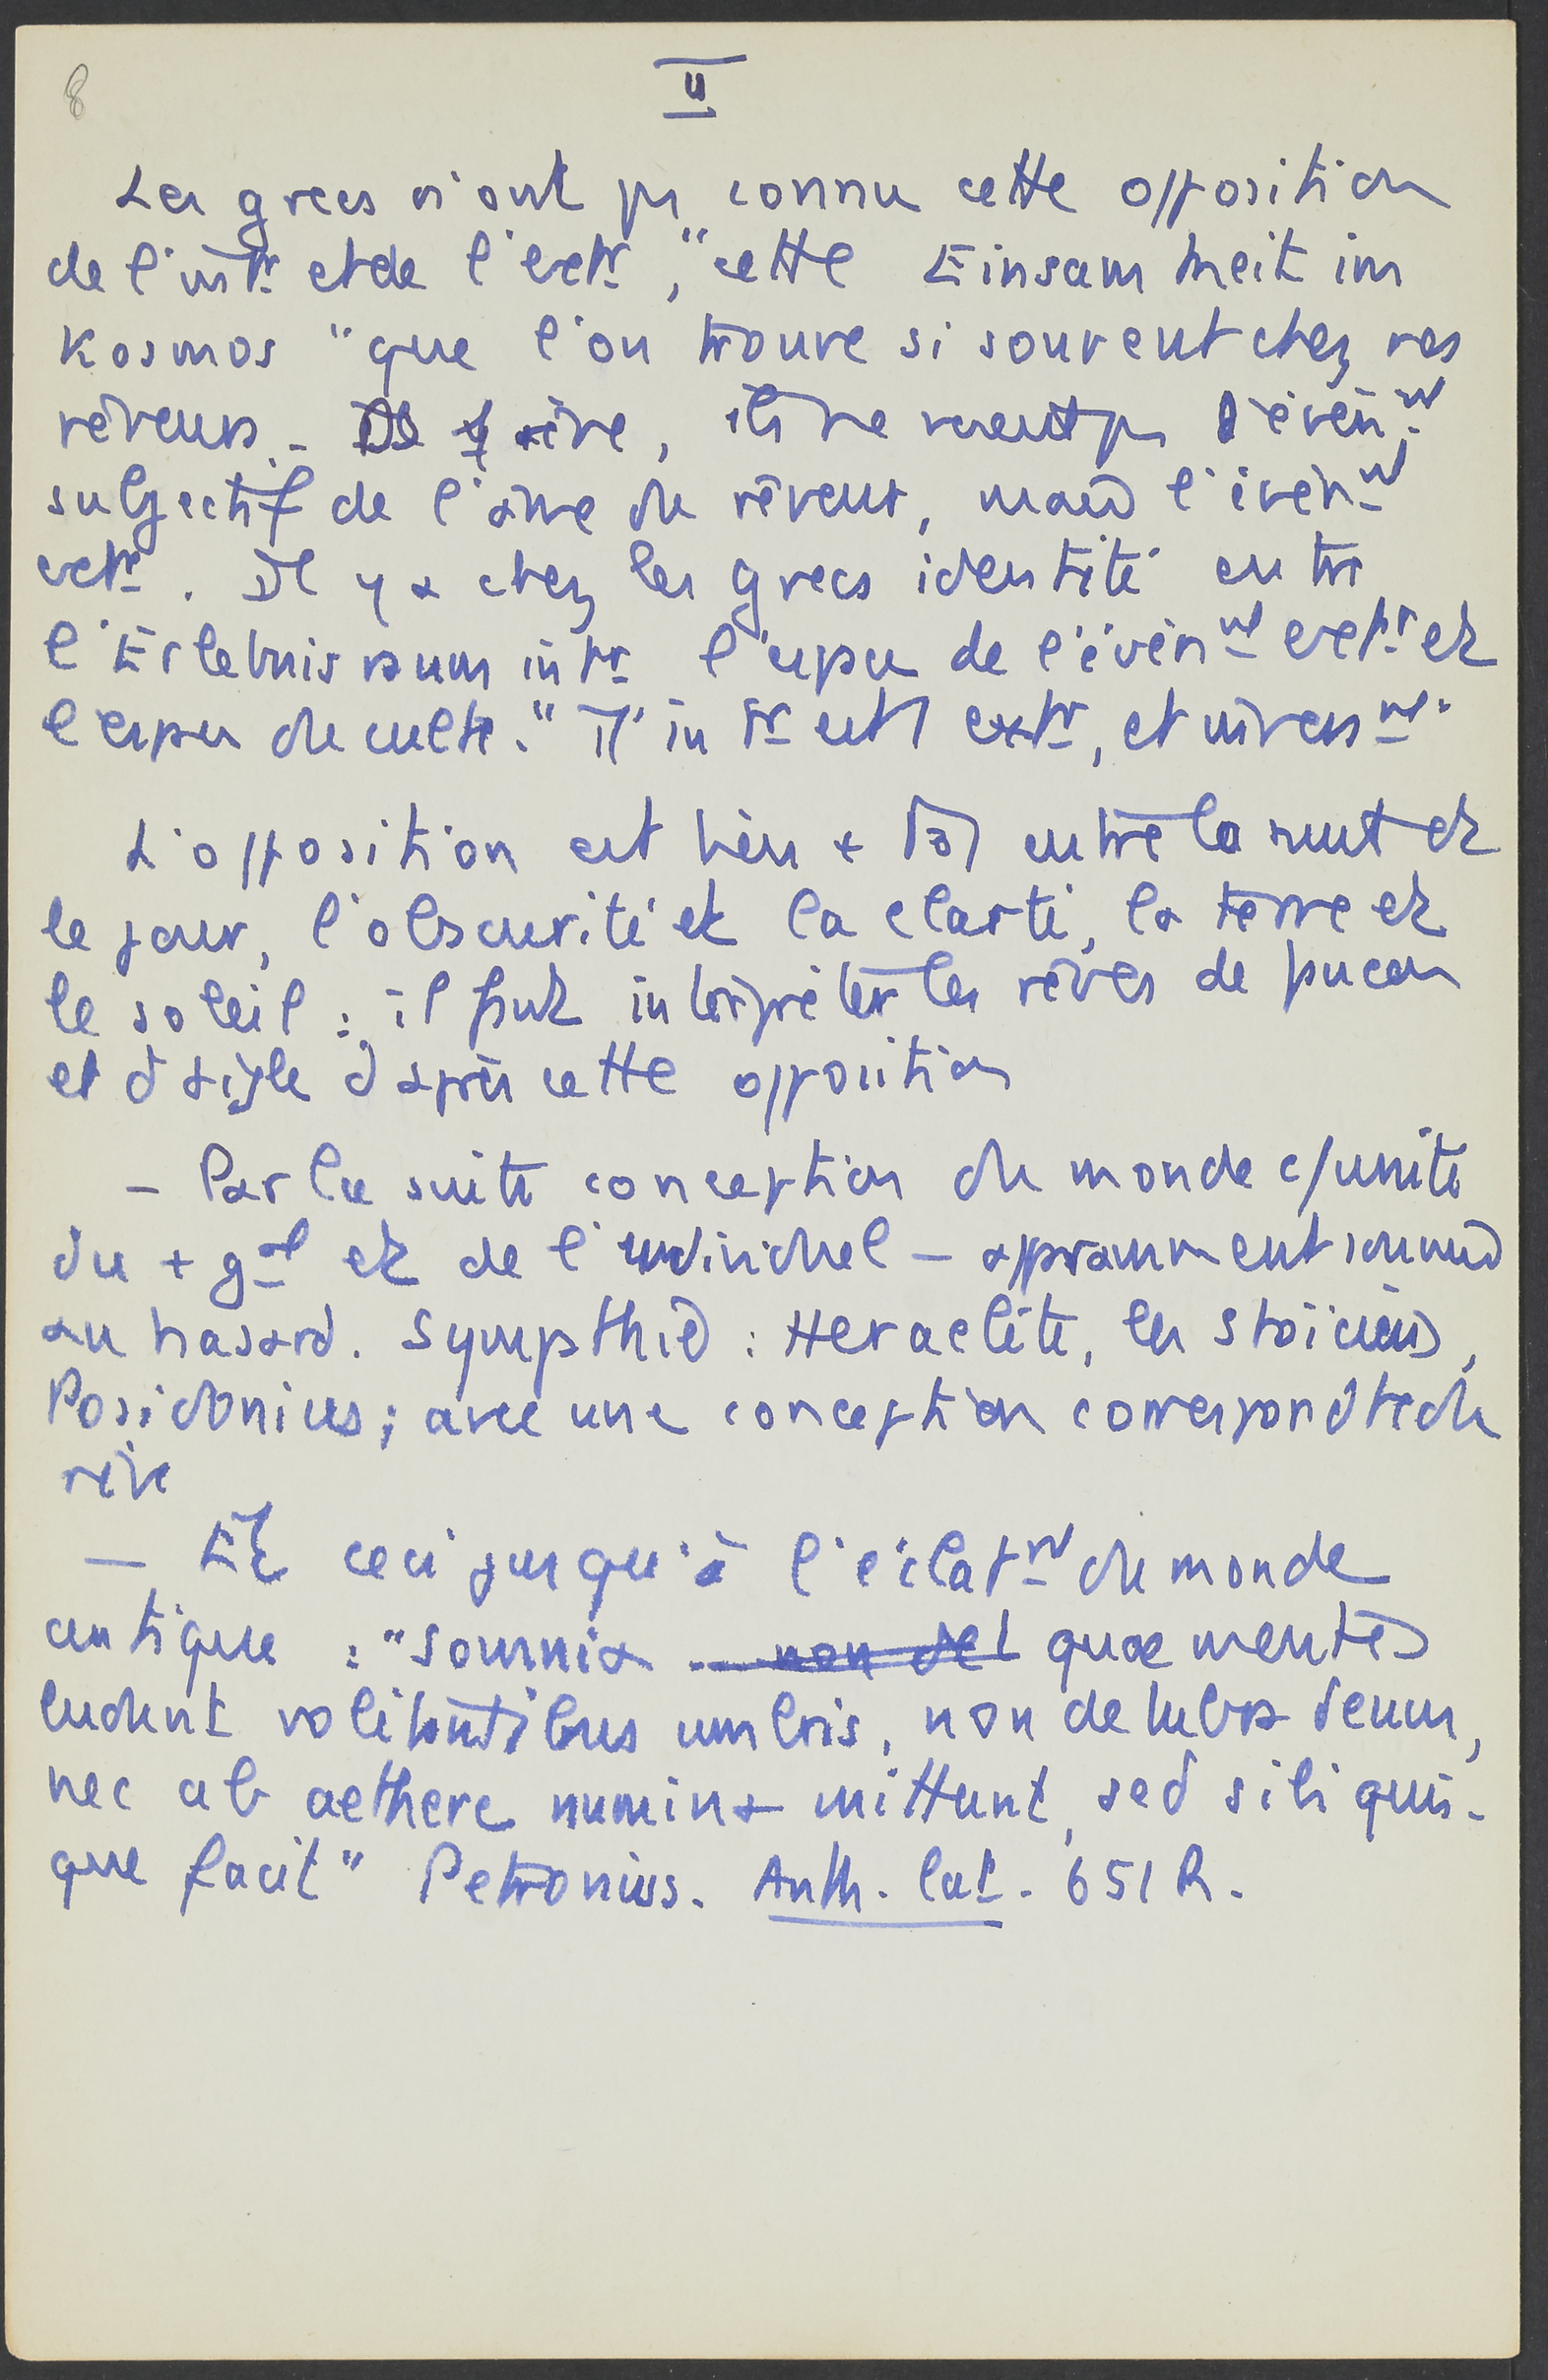 8
II
Les grecs n'ont pas connu cette opposition
de l'intr et de l'extr, "cette Einsamkeit im
Kosmos" que l'on trouve si souvent chez nos
rêveurs. rêve, ils ne voient pas l'évén.nt
subjectif de l'âme du rêveur, mais l'évén.nt
extr. Il y a chez les grecs identité entre
l'Erlebnisraum intr l'espace de l'évén.nt extr et
l'espace du culte. " L'intr est extr, et invers.nt
L'opposition est bien + tôt entre la nuit et
le jour, l'obscurité et la clarté, la terre et
le soleil : il faut interpréter les rêves de
et d'aigle d'après cette opposition
- Par la suite conception du monde c/ unité
du + gal et de l'individuel - apparamment soumis
au hasard. Sympathie : Heraclite, les stoïciens,
Posidonius ; avec une conception correspondte du
rêve
- Et ceci jusqu'à l'éclat.nt du monde
antique : "Somnia non del quae mentes
ludunt volitantibus umbris, non delubra deum,
nec ab aethere numina mittunt, sed sibi quis-
que facit" Petronius. Anth. lat. 651 R.